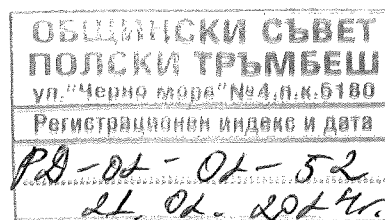 ОБЩИНСКИ СЪВЕТ
ПОЛСКИ ТРЪМБЕШ
ул."Черно море"№4,п.к.5180
Регистрационен индекс и дата
РД-01-01-52
21.01.2014г.